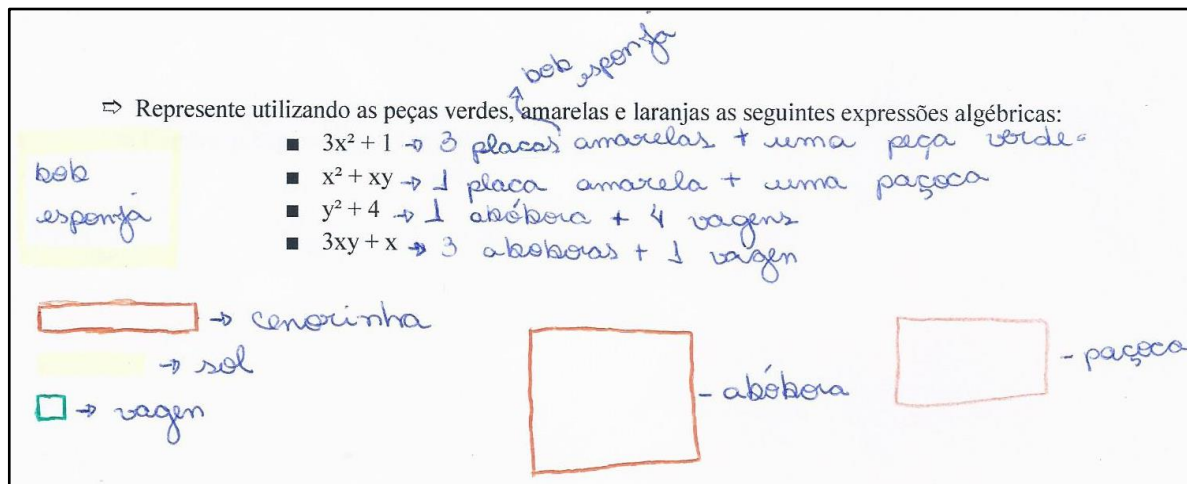 bob esponja
⇨ Represente utilizando as peças verdes, amarelas e laranjas as seguintes expressões algébricas:
▪ 3x² + 1 → 3 placas amarelas + uma peça verde.
▪ x² + xy → 1 placa amarela + uma paçoca
▪ y² + 4 → 1 abóbora + 4 vagens
▪ 3xy + x → 3 aboboras + 1 vagen
bob
esponja
→ cenorinha
→ sol
→ vagen
- abóbora
- paçoca